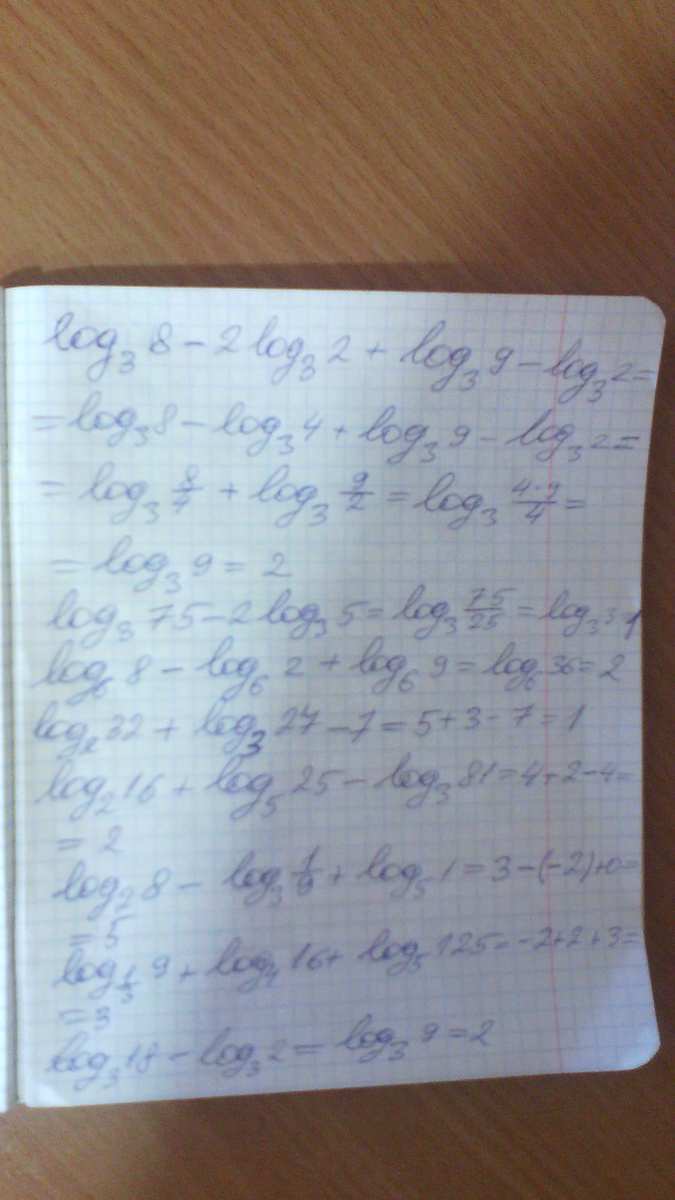 log₃ 8 − 2 log₃ 2 + log₃ 9 − log₃ 2 =
= log₃ 8 − log₃ 4 + log₃ 9 − log₃ 2 =
= log₃ 8/4 + log₃ 9/2 = log₃ (4·9)/4 =
= log₃ 9 = 2
log₃ 75 − 2 log₃ 5 = log₃ 75/25 = log₃ 3 = 1
log₆ 8 − log₆ 2 + log₆ 9 = log₆ 36 = 2
log₂ 32 + log₃ 27 − 7 = 5 + 3 − 7 = 1
log₂ 16 + log₅ 25 − log₃ 81 = 4 + 2 − 4 =
= 2
log₂ 8 − log₃ 1/9 + log₅ 1 = 3 − (−2) + 0 =
= 5
log_(1/3) 9 + log₄ 16 + log₅ 125 = −2 + 2 + 3 =
= 3
log₃ 18 − log₃ 2 = log₃ 9 = 2